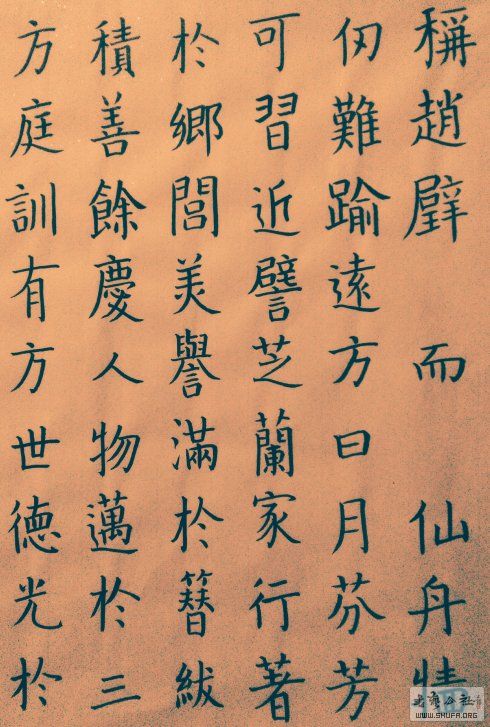 稱趙璧 而 仙舟情
仞難踰遠方日月芬芳
可習近譬芝蘭家行著
於鄉閭美譽滿於簪紱
積善餘慶人物邁於三
方庭訓有方世德光於
书艺公社
WWW.SHUFA.ORG